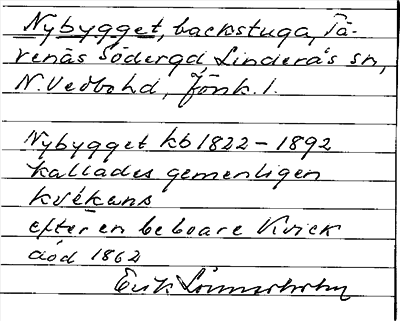 Nybygget, backstuga, Tå-
renäs Södergd Linderås sn,
N. Vedbo hd, Jönk. l.
Nybygget kb 1822 – 1892
kallades gemenligen
kvékens
efter en beboare Kvick
död 1862
Erik